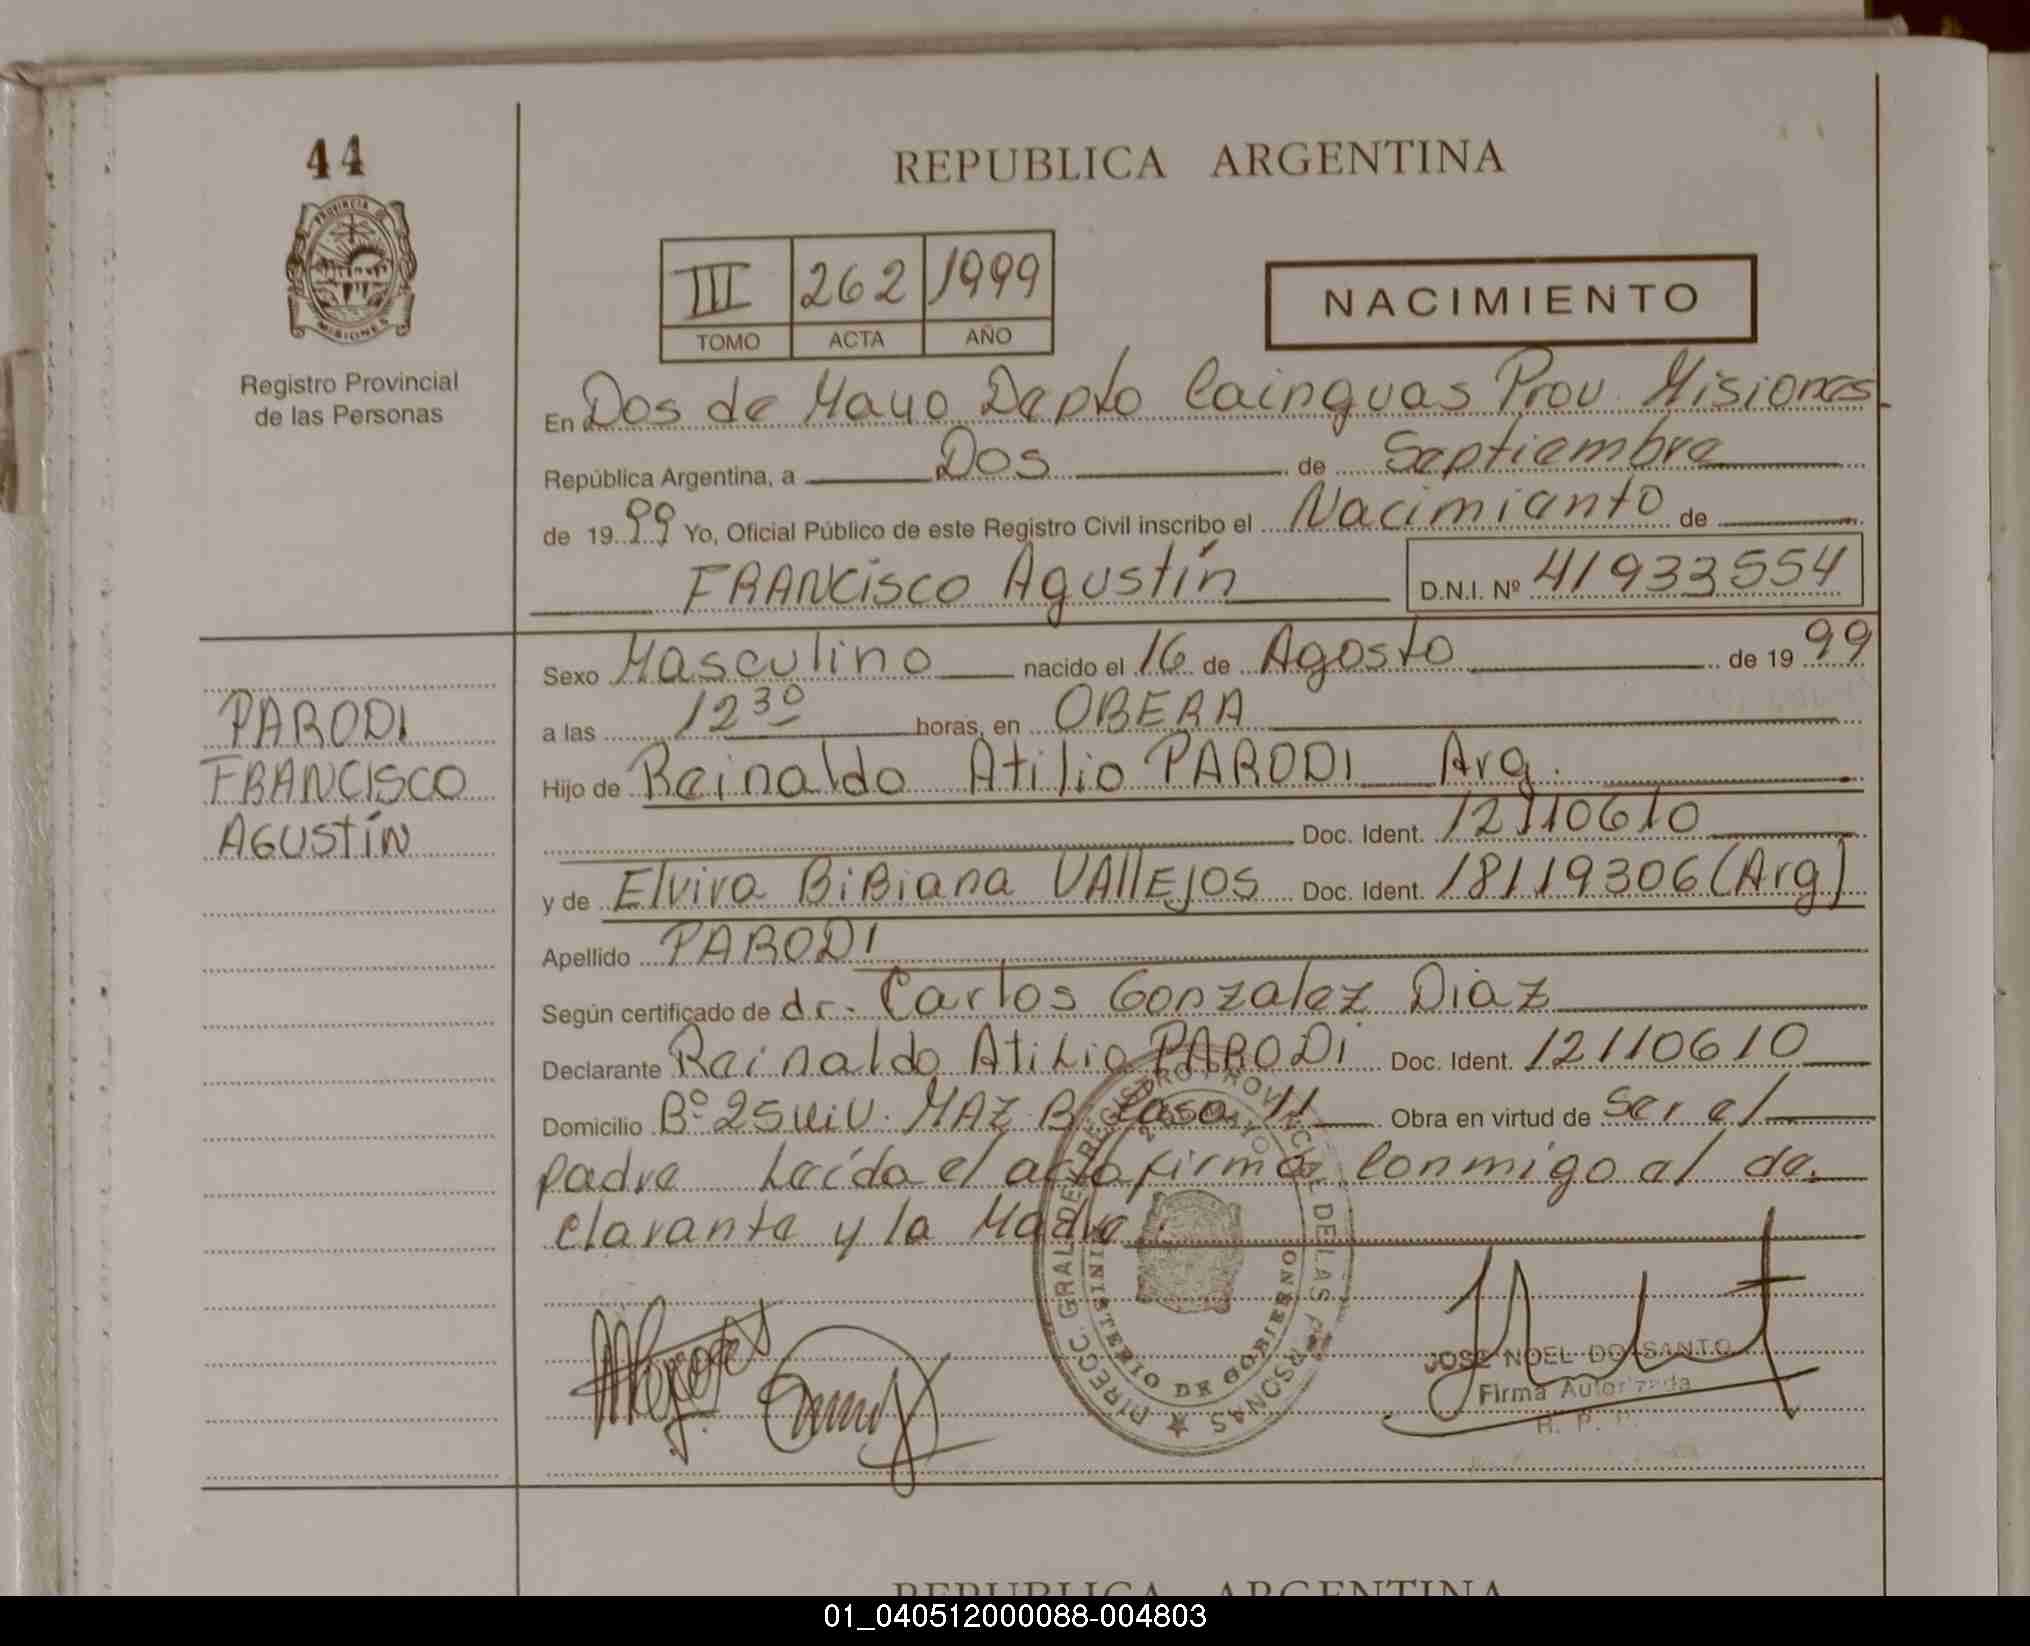 44
PROVINCIA DE
MISIONES
Registro Provincial
de las Personas
REPUBLICA ARGENTINA
III 262 1999
TOMO ACTA AÑO
NACIMIENTO
En Dos de Mayo Depto Cainguas Prov. Misiones
República Argentina, a Dos de Septiembre
de 1999 Yo, Oficial Público de este Registro Civil inscribo el Nacimianto de
FRANCISCO Agustín D.N.I. Nº 41933554
Sexo Masculino nacido el 16 de Agosto de 1999
a las 12 30 horas, en OBERA
Hijo de Reinaldo Atilio PARODI Arg.
Doc. Ident. 12110610
y de Elvira BiBiana VAllEjos Doc. Ident. 18119306 (Arg)
Apellido PARODI
Según certificado de dr. Carlos Gonzalez Diaz
Declarante Reinaldo Atilio PARODi Doc. Ident. 12110610
Domicilio Bº 25 viv. MAZ B Casa 11 Obra en virtud de Ser el
padre Leída el acta firma Conmigo el de
clarante y la Madre.
PARODI
FRANCISCO
AGUSTÍN
DIRECC. GRAL DEL REGISTRO PROVINCIAL DE LAS PERSONAS
MINISTERIO DE GOBIERNO
JOSE NOEL DO SANTO
Firma Autorizada
R. P. P.
REPUBLICA ARGENTINA
01_040512000088-004803